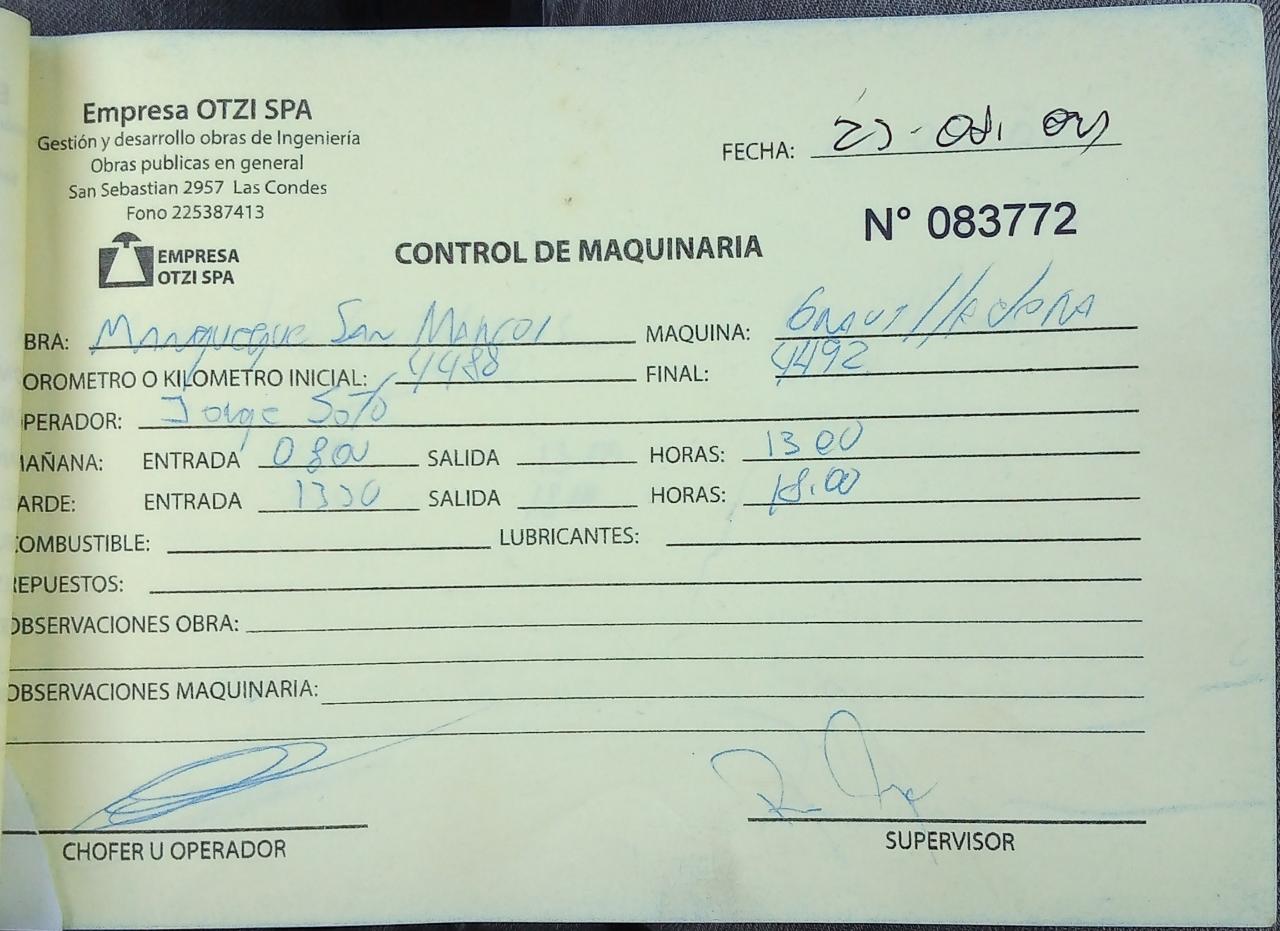 Empresa OTZI SPA
Gestión y desarrollo obras de Ingeniería
Obras publicas en general
San Sebastian 2957 Las Condes
Fono 225387413
EMPRESA
OTZI SPA
FECHA:
N° 083772
CONTROL DE MAQUINARIA
BRA: San Marcos MAQUINA: Gravilladora
OROMETRO O KILOMETRO INICIAL: 4488 FINAL: 4492
PERADOR: Jorge Soto
AÑANA: ENTRADA 0800 SALIDA HORAS: 1300
ARDE: ENTRADA 1330 SALIDA HORAS: 18.00
OMBUSTIBLE: LUBRICANTES:
REPUESTOS:
OBSERVACIONES OBRA:
OBSERVACIONES MAQUINARIA:
CHOFER U OPERADOR SUPERVISOR